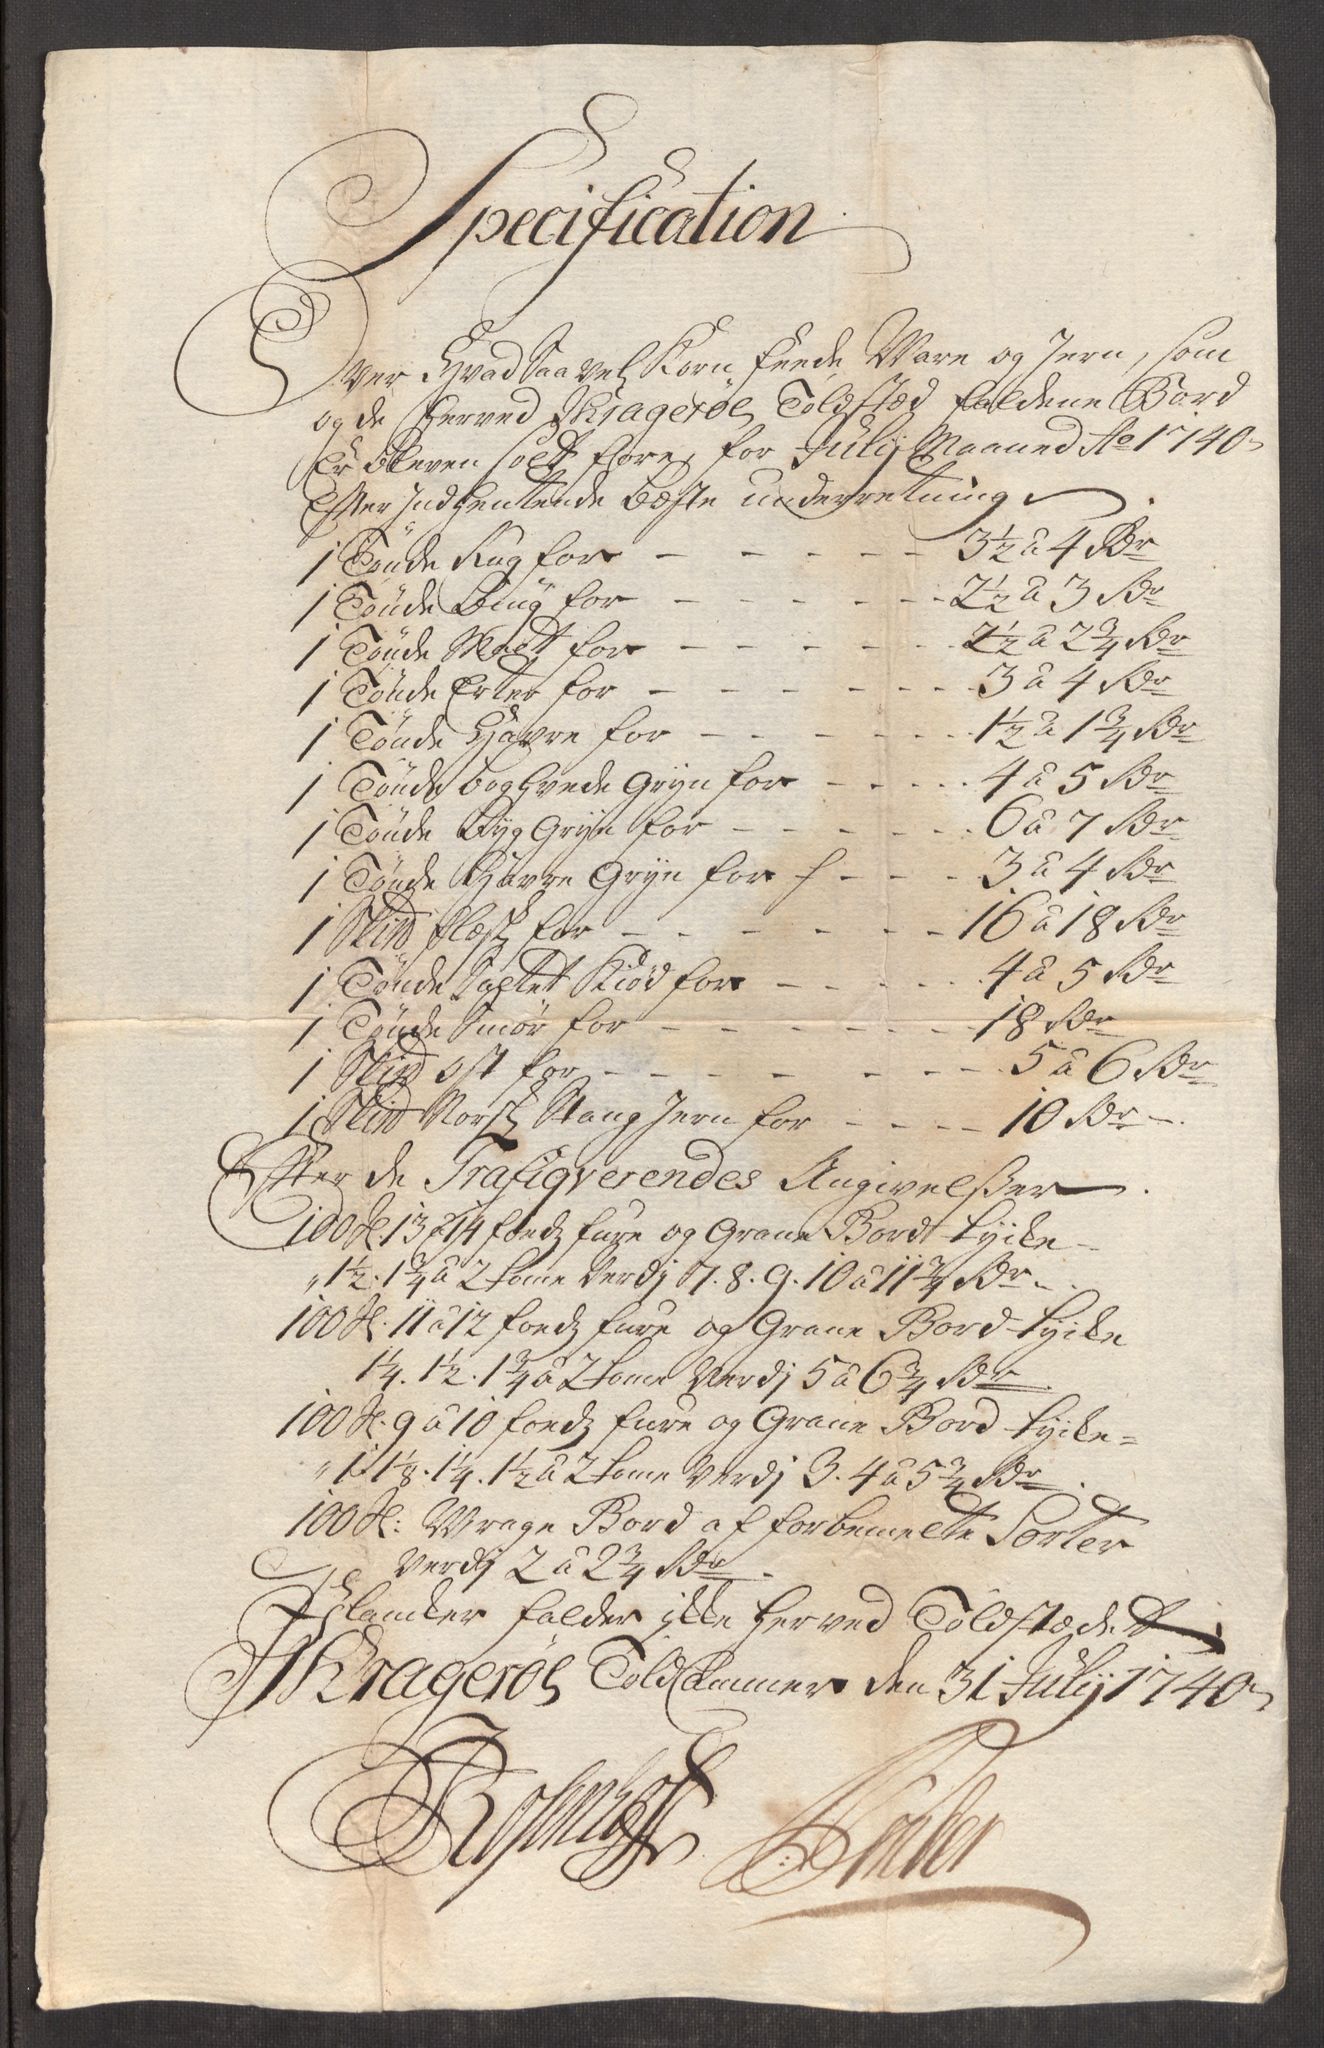 Specification
Over Hvad Saavel Korn feede Vare og Jern, som
og de herved Kragerøes Toldstæd faldene Bord
Er bleven solt fore, for Julij Maaned Ao 1740
Efter Indhentende beste underretning
1 Tønde Rug for - - - - - - 3½ â 4 Rdr
1 Tønde Biug for - - - - - - 2½ â 3 Rdr
1 Tønde Malt for - - - - - - 2½ â 2¾ Rdr
1 Tønde Erter for - - - - - - 3 â 4 Rdr
1 Tønde Havre for - - - - - - 1½ â 1¾ Rdr
1 Tønde boghvede Gryn for - - - - 4 â 5 Rdr
1 Tønde Byg Gryn for - - - - - 6 â 7 Rdr
1 Tønde Havre Gryn for - - - - 3 â 4 Rdr
1 Skip flesk for - - - - - - - 16 â 18 Rdr
1 Tønde Saltet Kiød for - - - - - 4 â 5 Rdr
1 Tønde Smør for - - - - - - 18 Rdr
1 Skip ost for - - - - - - - - 5 â 6 Rdr
1 Skip Norsk Stang Jern for - - - - 10 Rdr
Efter de Trafiqverendes Angivelsser
100 st. 13 â 14 foeds furre og Grane Bord tycke
1½. 1¾ â 2 tome Verdj 7. 8. 9. 10 â 11¾ Rdr
100 st. 11 â 12 foeds furre og Grane Bord tycke
1¼. 1½. 1¾ â 2 tome Verdj 5 â 6¾ Rdr
100 st. 9 â 10 foeds furre og Grane Bord tycke
1. 1⅛. 1¼. 1½ â 2 tome Verdj 3. 4 â 5¾ Rdr
100 st. Vrage Bord af forbemelte Sorter
Verdj 2 â 2¾ Rdr
Plancker falder icke herved Toldstædet
Kragerøes Told Cammer den 31 Julij 1740